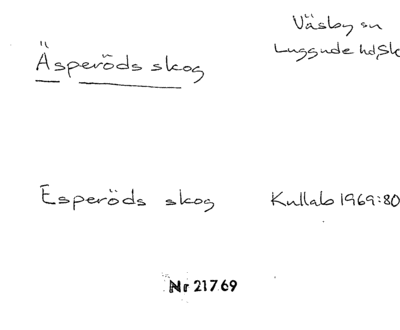 Väsby sn
Äsperöds skog
Luggude hd, Sk
Esperöds skog
Kullab 1969:80
Nr 21769